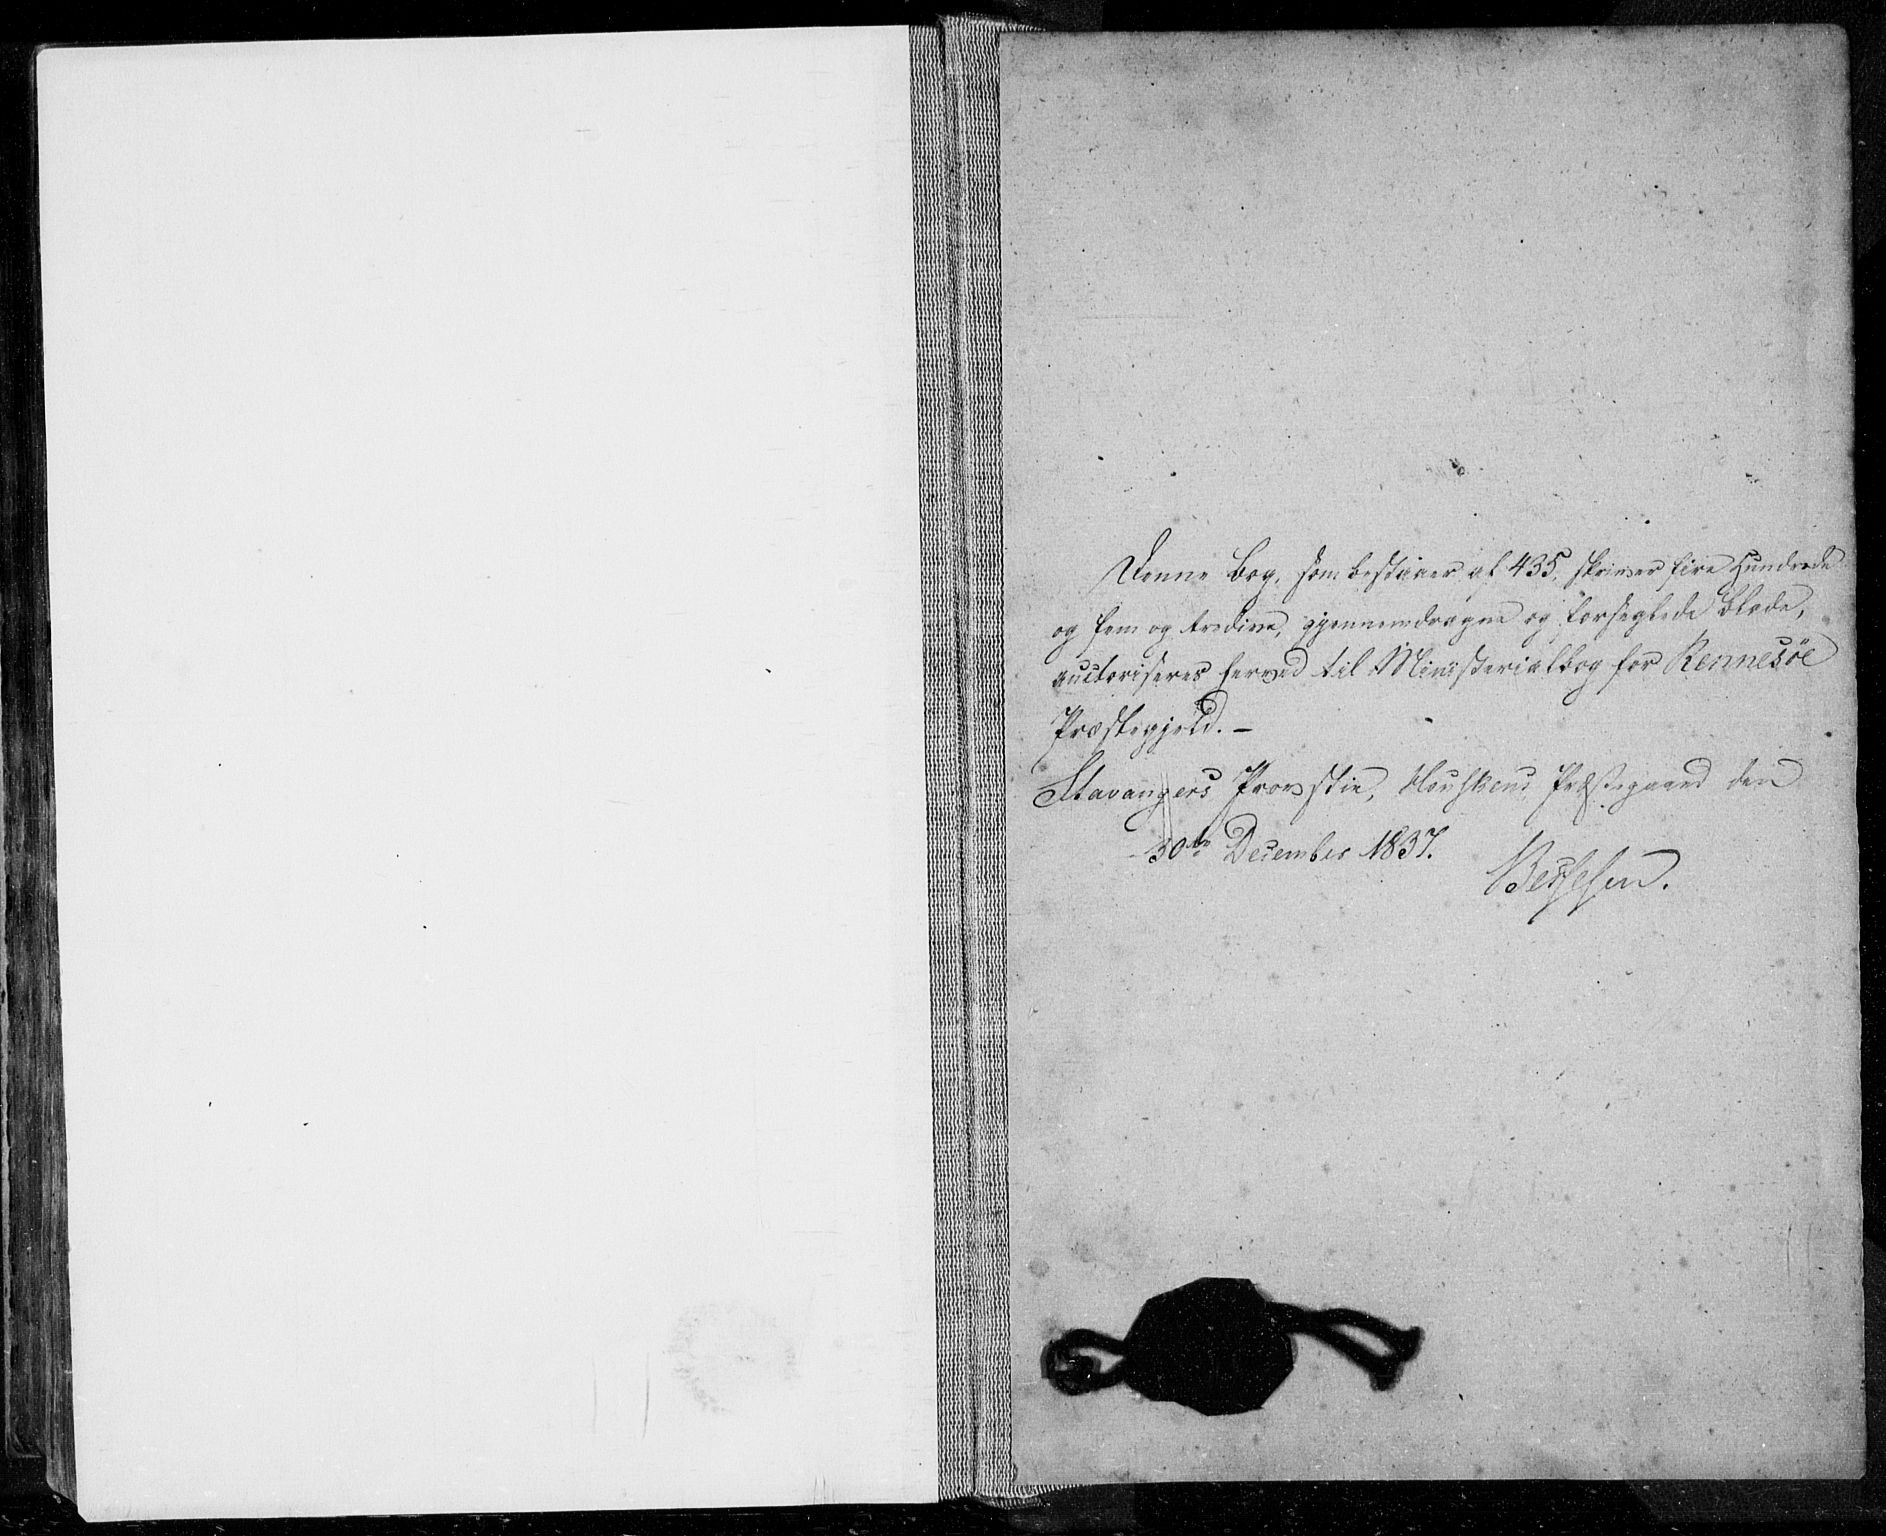 Denne Bog, som bestaaer af 435, skriver fire Hundrede
og fem og tredive, gjennemdragne og forseglede Blade,
auctoriseres herved til Ministerialbog for Rennesöe
Præstegjeld. –
Stavangers Provstie, Præstegaard den
30te December 1837.